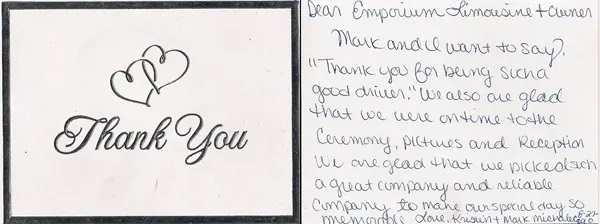 Thank You
Dear Emporium Limousine + Owner
Mark and I want to say,
"Thank you for being such a
good driver." We also are glad
that we were on time to the
Ceremony, Pictures and Reception
We are glad that we picked such
a great company and reliable
company to make our special day so
memorable Love, Kristin + Mark